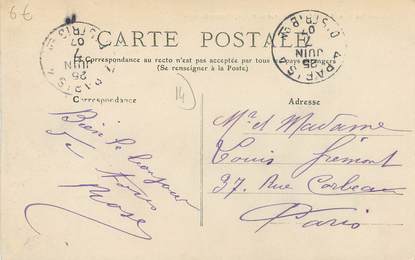 6€
CARTE POSTALE
La Correspondance au recto n'est pas acceptée par tous les pays étrangers
(Se renseigner à la Poste)
Correspondance
14
Adresse
Bien le bonjour
à tous
Rose
Mr et Madame
Louis Frémont
37. Rue Corbeau
Paris
PARIS
25
JUIN
07
DISTRIB